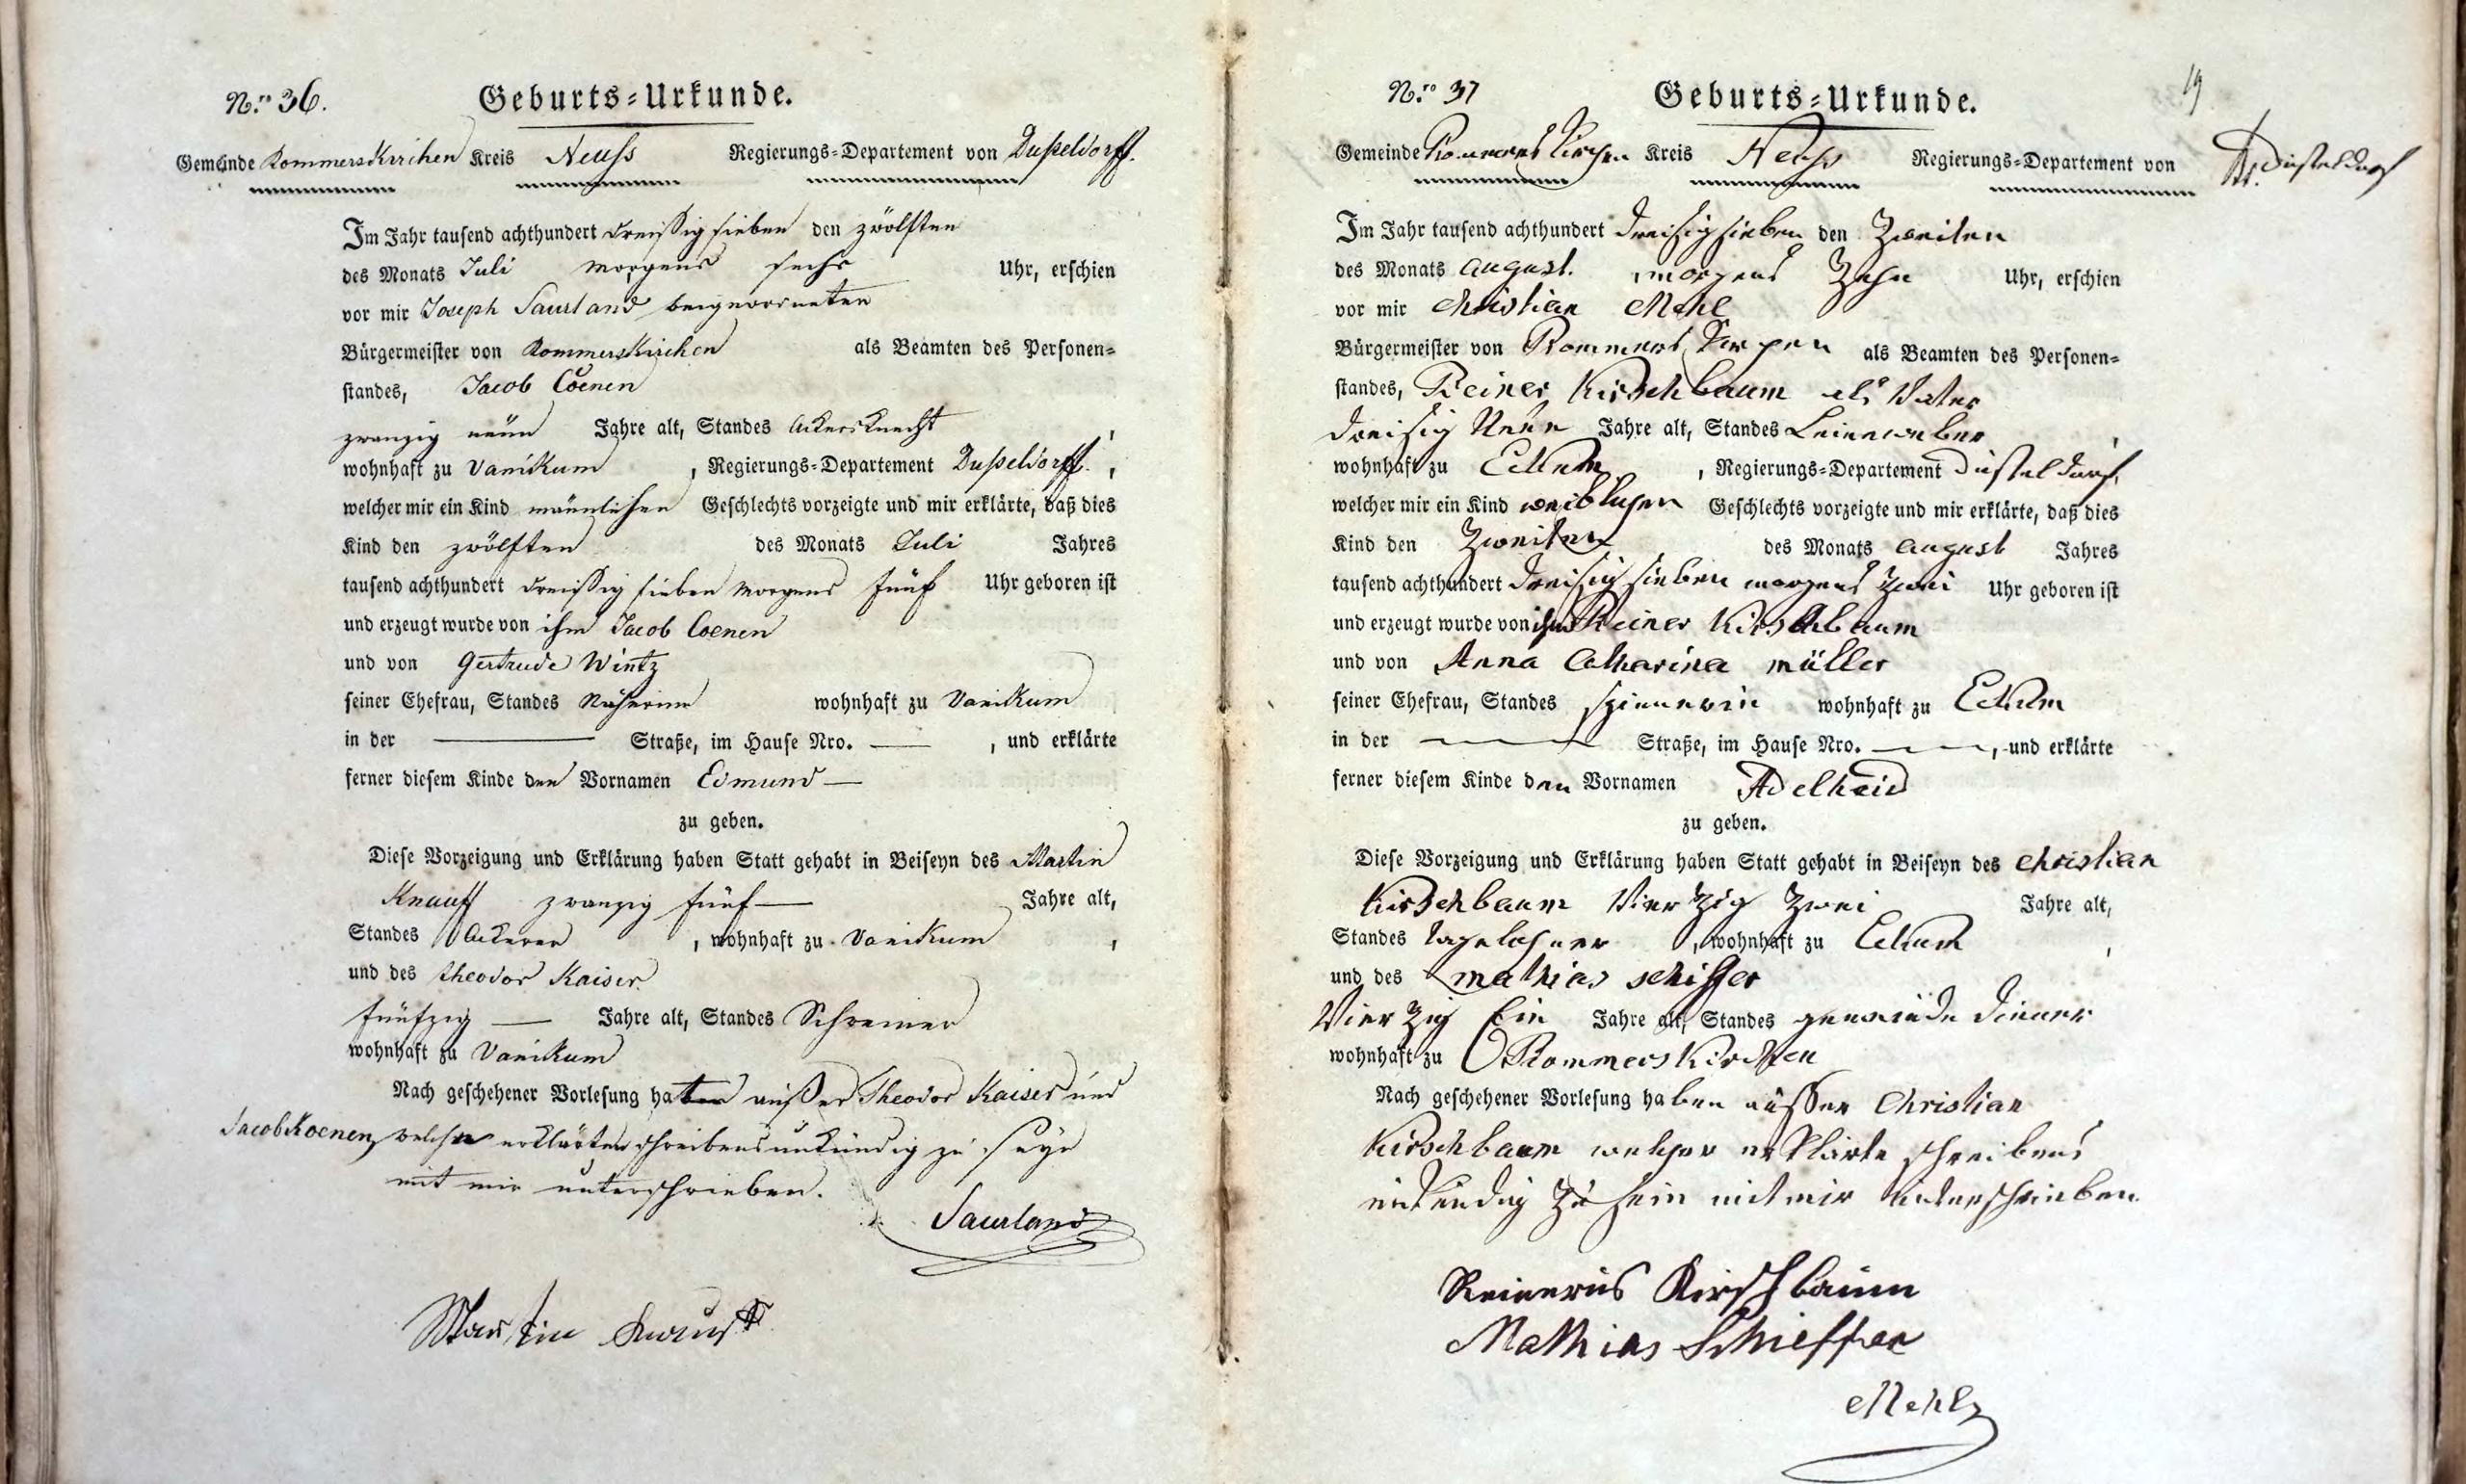 No. 36.
Geburts=Urkunde.
Gemeinde Rommerskirchen Kreis Neuss Regierungs=Departement von Dußeldorff.
Im Jahr tausend achthundert dreißig sieben den zwölften
des Monats Juli morgens sechs Uhr, erschien
vor mir Joseph Saurland beigeordneten
Bürgermeister von Rommerskirchen als Beamten des Personen=
standes, Jacob Coenen
zwanzig neun Jahre alt, Standes Ackersknecht,
wohnhaft zu Vanikum, Regierungs=Departement Dußeldorff.,
welcher mir ein Kind männlichen Geschlechts vorzeigte und mir erklärte, daß dies
Kind den zwölften des Monats Juli Jahres
tausend achthundert dreißig sieben Morgens fünf Uhr geboren ist
und erzeugt wurde von ihm Jacob Coenen
und von Gertrude Wintz
seiner Ehefrau, Standes Näherinn wohnhaft zu Vanikum
in der — Straße, im Hause Nro. —, und erklärte
ferner diesem Kinde den Vornamen Edmund —
zu geben.
Diese Vorzeigung und Erklärung haben Statt gehabt in Beiseyn des Martin
Knauff zwanzig fünf — Jahre alt,
Standes Ackerer, wohnhaft zu Vanikum,
und des Theodor Kaiser
fünfzig — Jahre alt, Standes Schreiner
wohnhaft zu Vanikum
Nach geschehener Vorlesung haben außer Theodor Kaiser und
Jacob Koenen, welche erklärten schreibensunkündig zu seyn
mit mir unterschrieben.
Saurland
Martin Knauff
No. 37
Geburts=Urkunde.
19
Gemeinde Rommerskirchen Kreis Neuss Regierungs=Departement von Düsseldorf
Im Jahr tausend achthundert dreisig sieben den Zweiten
des Monats august. morgens Zehn Uhr, erschien
vor mir Christian Mehl
Bürgermeister von Rommerskirchen als Beamten des Personen=
standes, Reiner Kirschbaum als Vater
dreisig Neun Jahre alt, Standes Leinenweber
wohnhaft zu Eckum, Regierungs=Departement Düsseldorf,
welcher mir ein Kind weiblichen Geschlechts vorzeigte und mir erklärte, daß dies
Kind den Zweiten des Monats august Jahres
tausend achthundert dreisig sieben morgens zwei Uhr geboren ist
und erzeugt wurde von ihm Reiner Kirschbaum
und von Anna Catharina müller
seiner Ehefrau, Standes spinnerin wohnhaft zu Eckum
in der — Straße, im Hause Nro. —, und erklärte
ferner diesem Kinde den Vornamen Adelheid
zu geben.
Diese Vorzeigung und Erklärung haben Statt gehabt in Beiseyn des Christian
Kirschbaum Vierzig Zwei Jahre alt,
Standes tagelohner, wohnhaft zu Eckum,
und des mathias schiffer
Vierzig Ein Jahre alt, Standes gemeinde diener
wohnhaft zu Rommerskirchen
Nach geschehener Vorlesung haben ausser Christian
Kirschbaum welcher erklärte schreibens
unkundig zu sein mit mir unterschrieben.
Reinerus Kirschbaum
Mathias Schieffer
Mehl